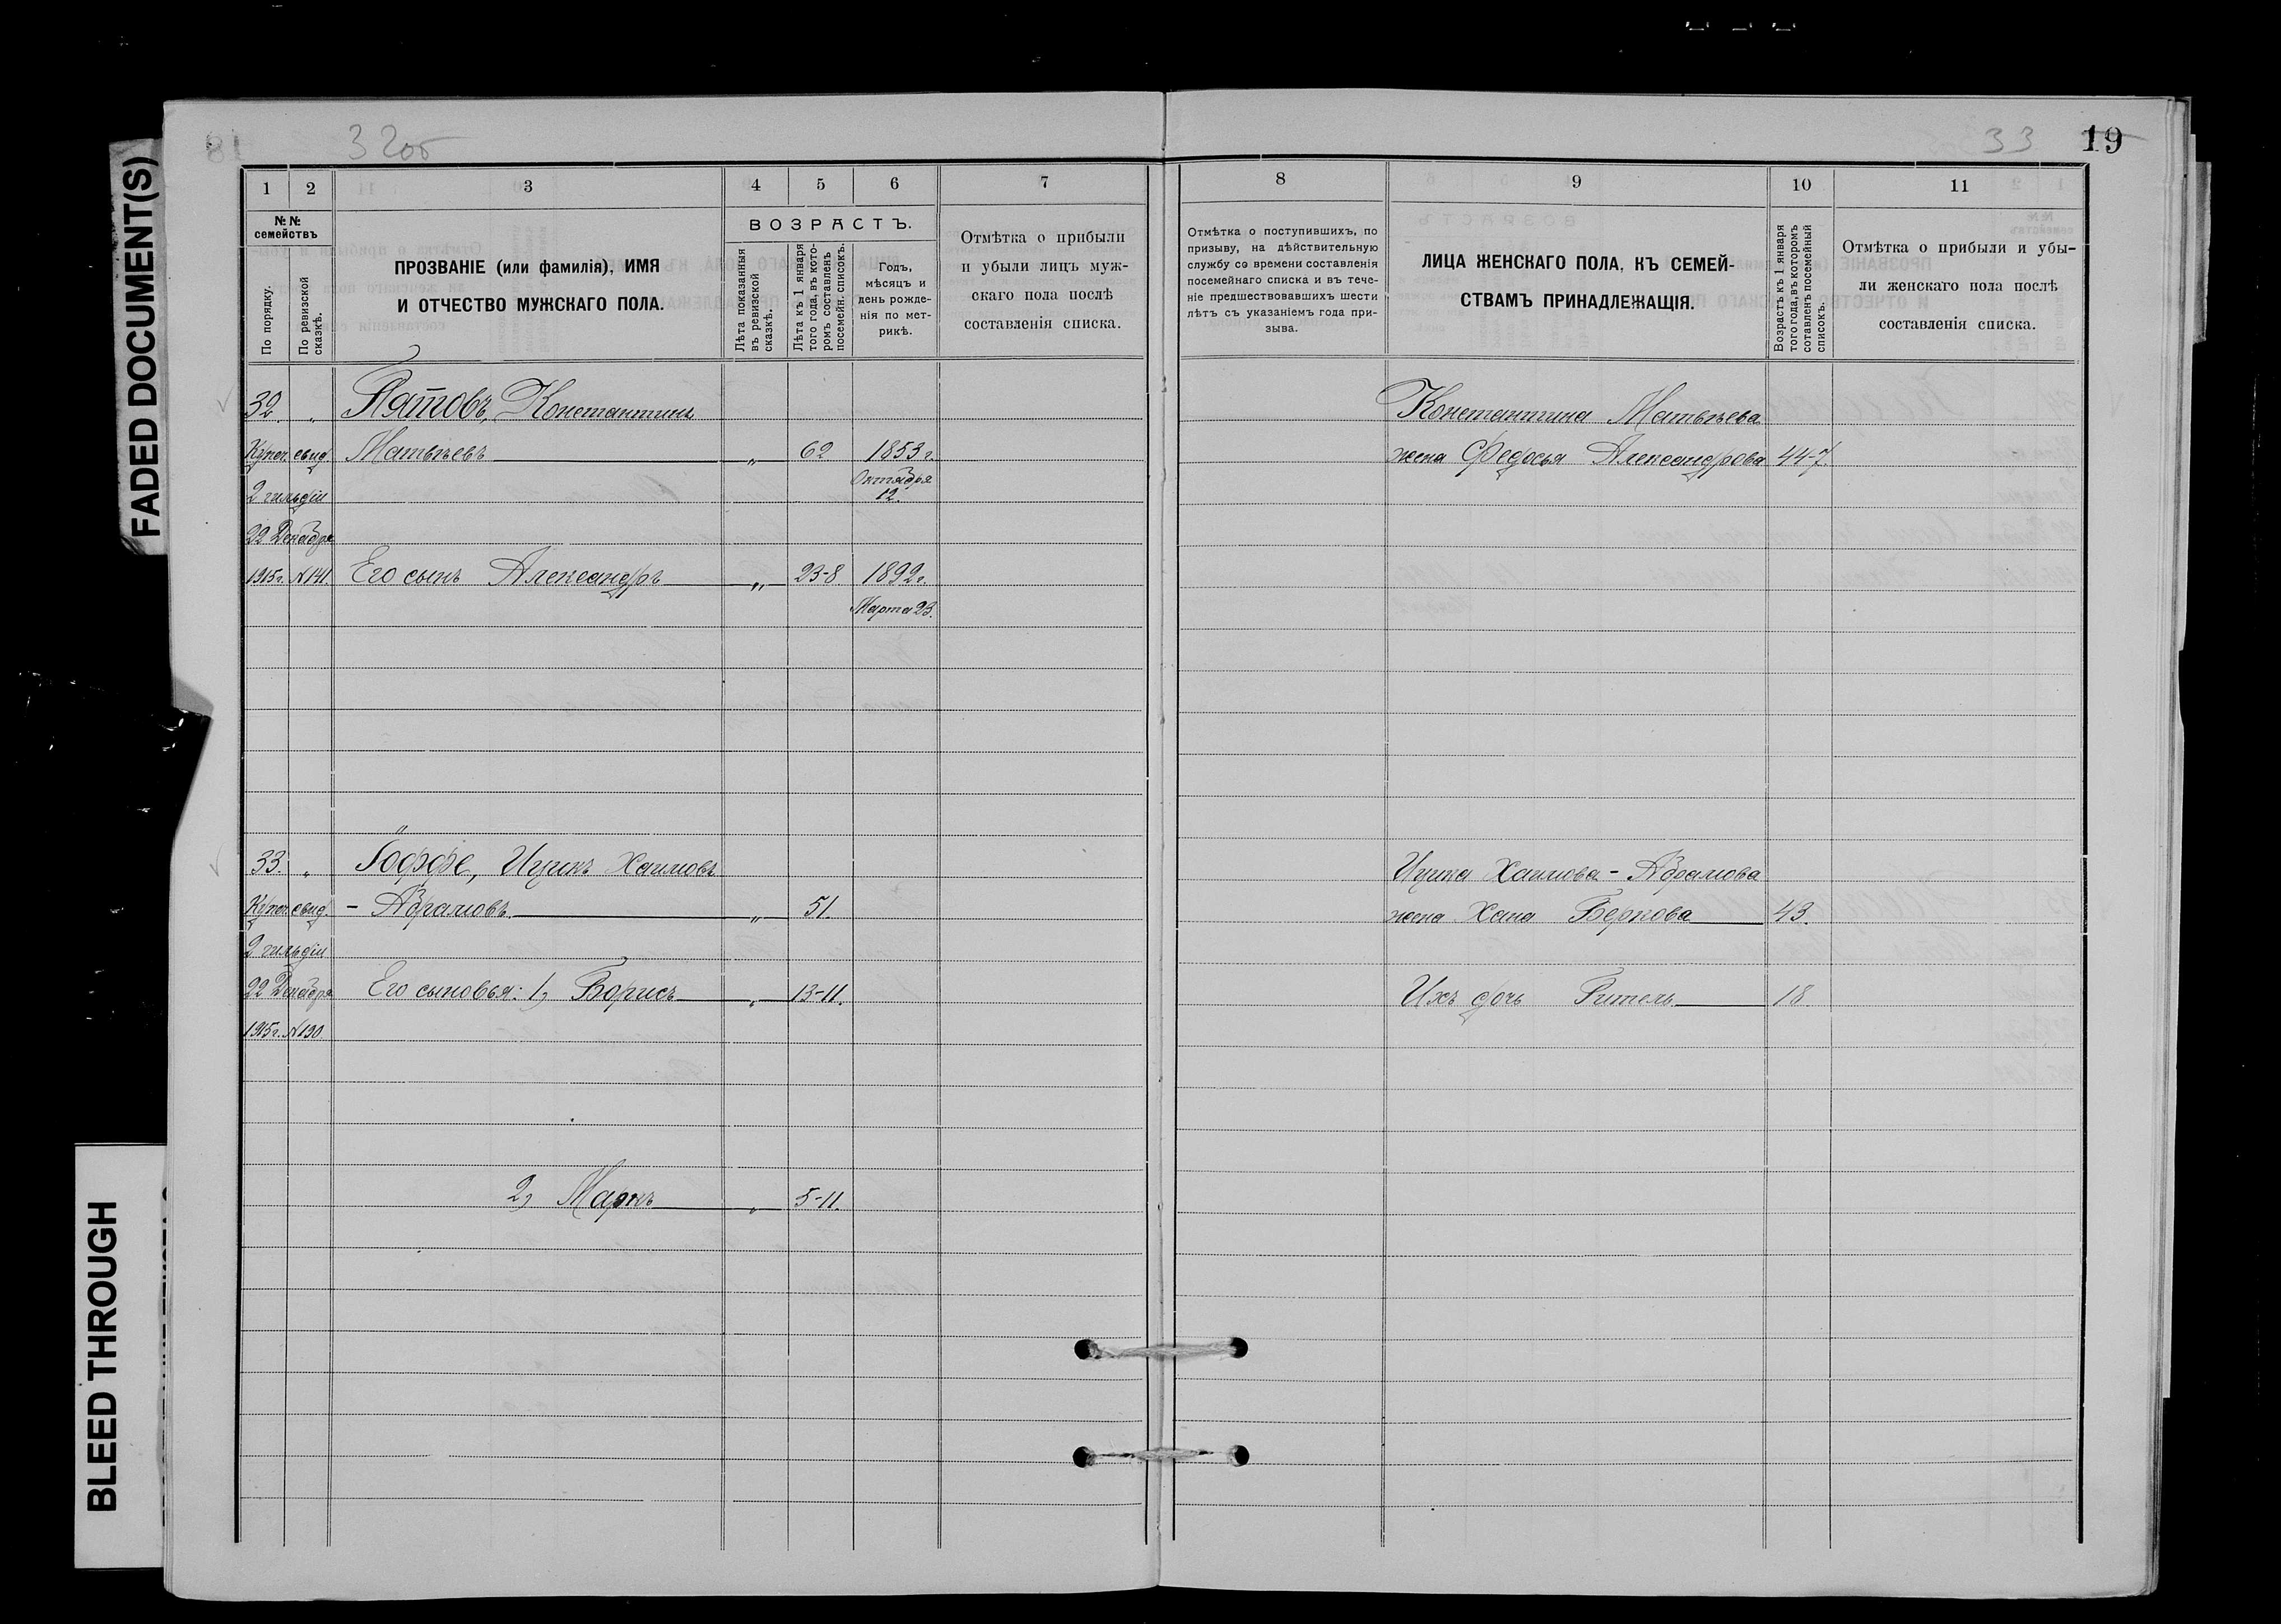 FADED DOCUMENT(S)
BLEED THROUGH
32об
33
19
1
2
3
4
5
6
7
№ №
семействъ
По порядку.
По ревизской
сказкѣ.
ПРОЗВАНІЕ (или фамилія), ИМЯ
И ОТЧЕСТВО МУЖСКАГО ПОЛА.
ВОЗРАСТЪ.
Лѣта показанныя
въ ревизской
сказкѣ.
Лѣта къ 1 января
того года, въ кото-
ромъ составленъ
посемейн. списокъ.
Годъ,
мѣсяцъ и
день рожде-
нія по мет-
рикѣ.
Отмѣтка о прибыли
и убыли лицъ муж-
скаго пола послѣ
составленія списка.
8
9
10
11
Отмѣтка о поступившихъ, по
призыву, на дѣйствительную
службу со времени составленія
посемейнаго списка и въ тече-
ніе предшествовавшихъ шести
лѣтъ съ указаніемъ года при-
зыва.
ЛИЦА ЖЕНСКАГО ПОЛА, КЪ СЕМЕЙ-
СТВАМЪ ПРИНАДЛЕЖАЩІЯ.
Возрастъ къ 1 января
того года, въ которомъ
составленъ посемейный
списокъ.
Отмѣтка о прибыли и убы-
ли женскаго пола послѣ
составленія списка.
32. „ Пятовъ, Константинъ
Купеч. свид. Матвѣевъ „ 62 1853 г.
Октября
2 гильдіи 12.
22 Декабря
1915 г. № 141. Его сынъ Александръ „ 23-8 1892 г.
Марта 23.
Константина Матвѣева
жена Федосья Александрова 44-7.
33. „ Іоффе, Ицикъ Хаимовъ
Купеч. свид. - Абрамовъ „ 51.
2 гильдіи
22 Декабря Его сыновья: 1) Борисъ „ 13-11.
1915 г. № 190.
2) Маркъ „ 5-11.
Ицика Хаимова - Абрамова
жена Хана Беркова 43.
Ихъ дочь Гитель 18.